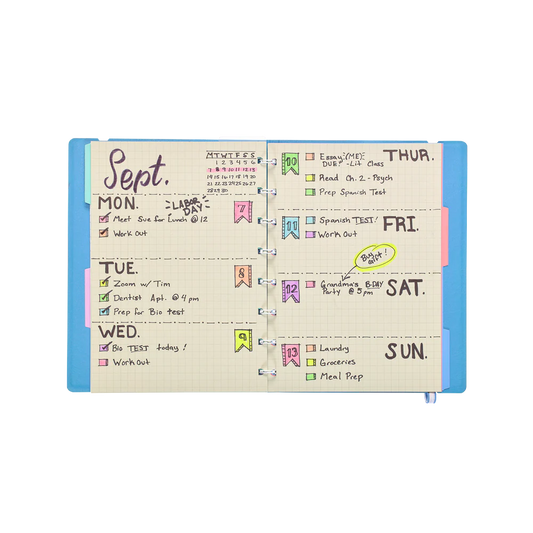 Sept.
M T W T F S S
1 2 3 4 5 6
7 8 9 10 11 12 13
14 15 16 17 18 19 20
21 22 23 24 25 26 27
28 29 30
MON.
LABOR
DAY
7
Meet Sue for Lunch @ 12
Work Out
TUE.
8
Zoom w/ Tim
Dentist Apt. @ 4 pm
Prep for Bio test
WED.
9
Bio TEST today!
Work out
THUR.
10
Essay (ME)
DUE? - Lit Class
Read Ch. 2 - Psych
Prep Spanish Test
FRI.
11
Spanish TEST!
Work Out
Buy
gift!
SAT.
12
Grandma's B-DAY
Party @ 5 pm
SUN.
13
Laundry
Groceries
Meal Prep